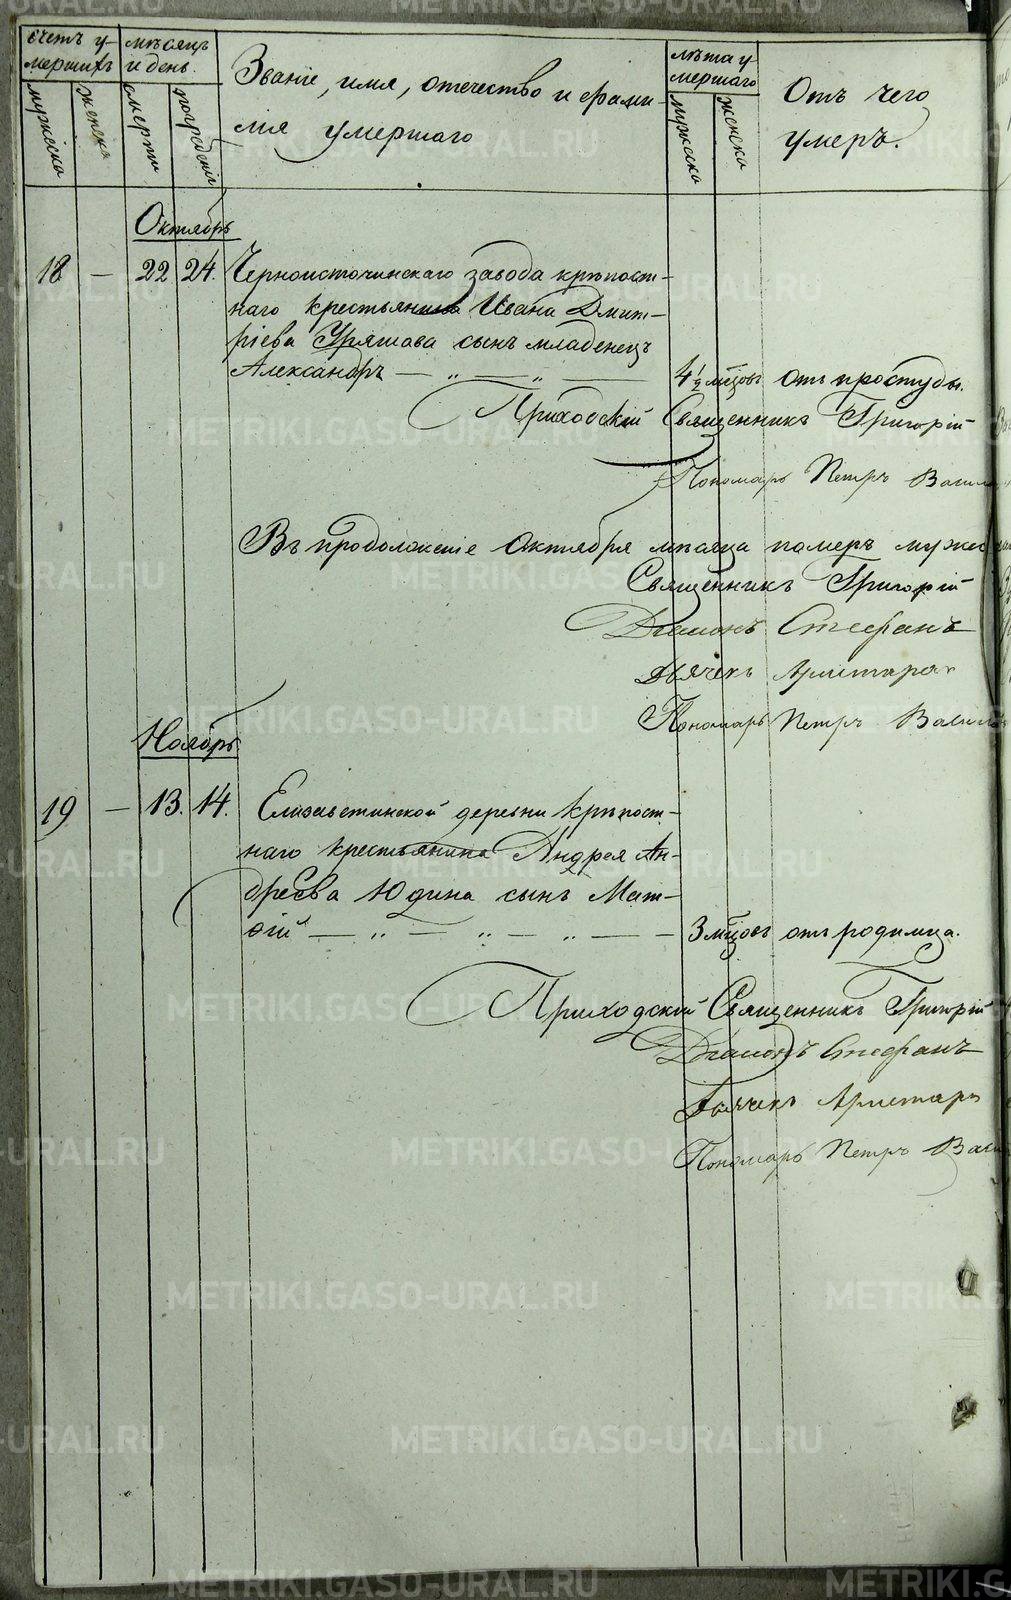 счетъ у-
мершихъ
мѣсяцъ
и день.
мужска
женска
смерти
погребенія
Званіе, имя, отечество и фами-
лія умершаго
лѣта у-
мершаго
мужска
женска
Отъ чего
умеръ.
Октябрь
18 — 22 24. Черноисточинскаго завода крѣпост-
наго крестьянина Ивана Дмит-
ріева Уряшова сынъ младенецъ
Александръ — „ — „ — 4½ мѣцовъ отъ простуды.
Приходскій Священникъ Григорій
Пономарь Петръ
Въ продолженіе Октября мѣсяца померъ
Священникъ Григорій
Діаконъ Стефанъ
Дьячекъ Аристарх
Пономарь Петръ
Ноябрь
19 — 13. 14. Елизаветинской деревни крѣпост-
наго крестьянина Андрея Ан-
дреева Юдина сынъ Мат-
ѳій — „ — „ — „ — — 3 мѣцовъ отъ родимца.
Приходскій Священникъ Григорій
Діаконъ Стефанъ
Дьячекъ Аристарх
Пономарь Петръ
METRIKI.GASO-URAL.RU